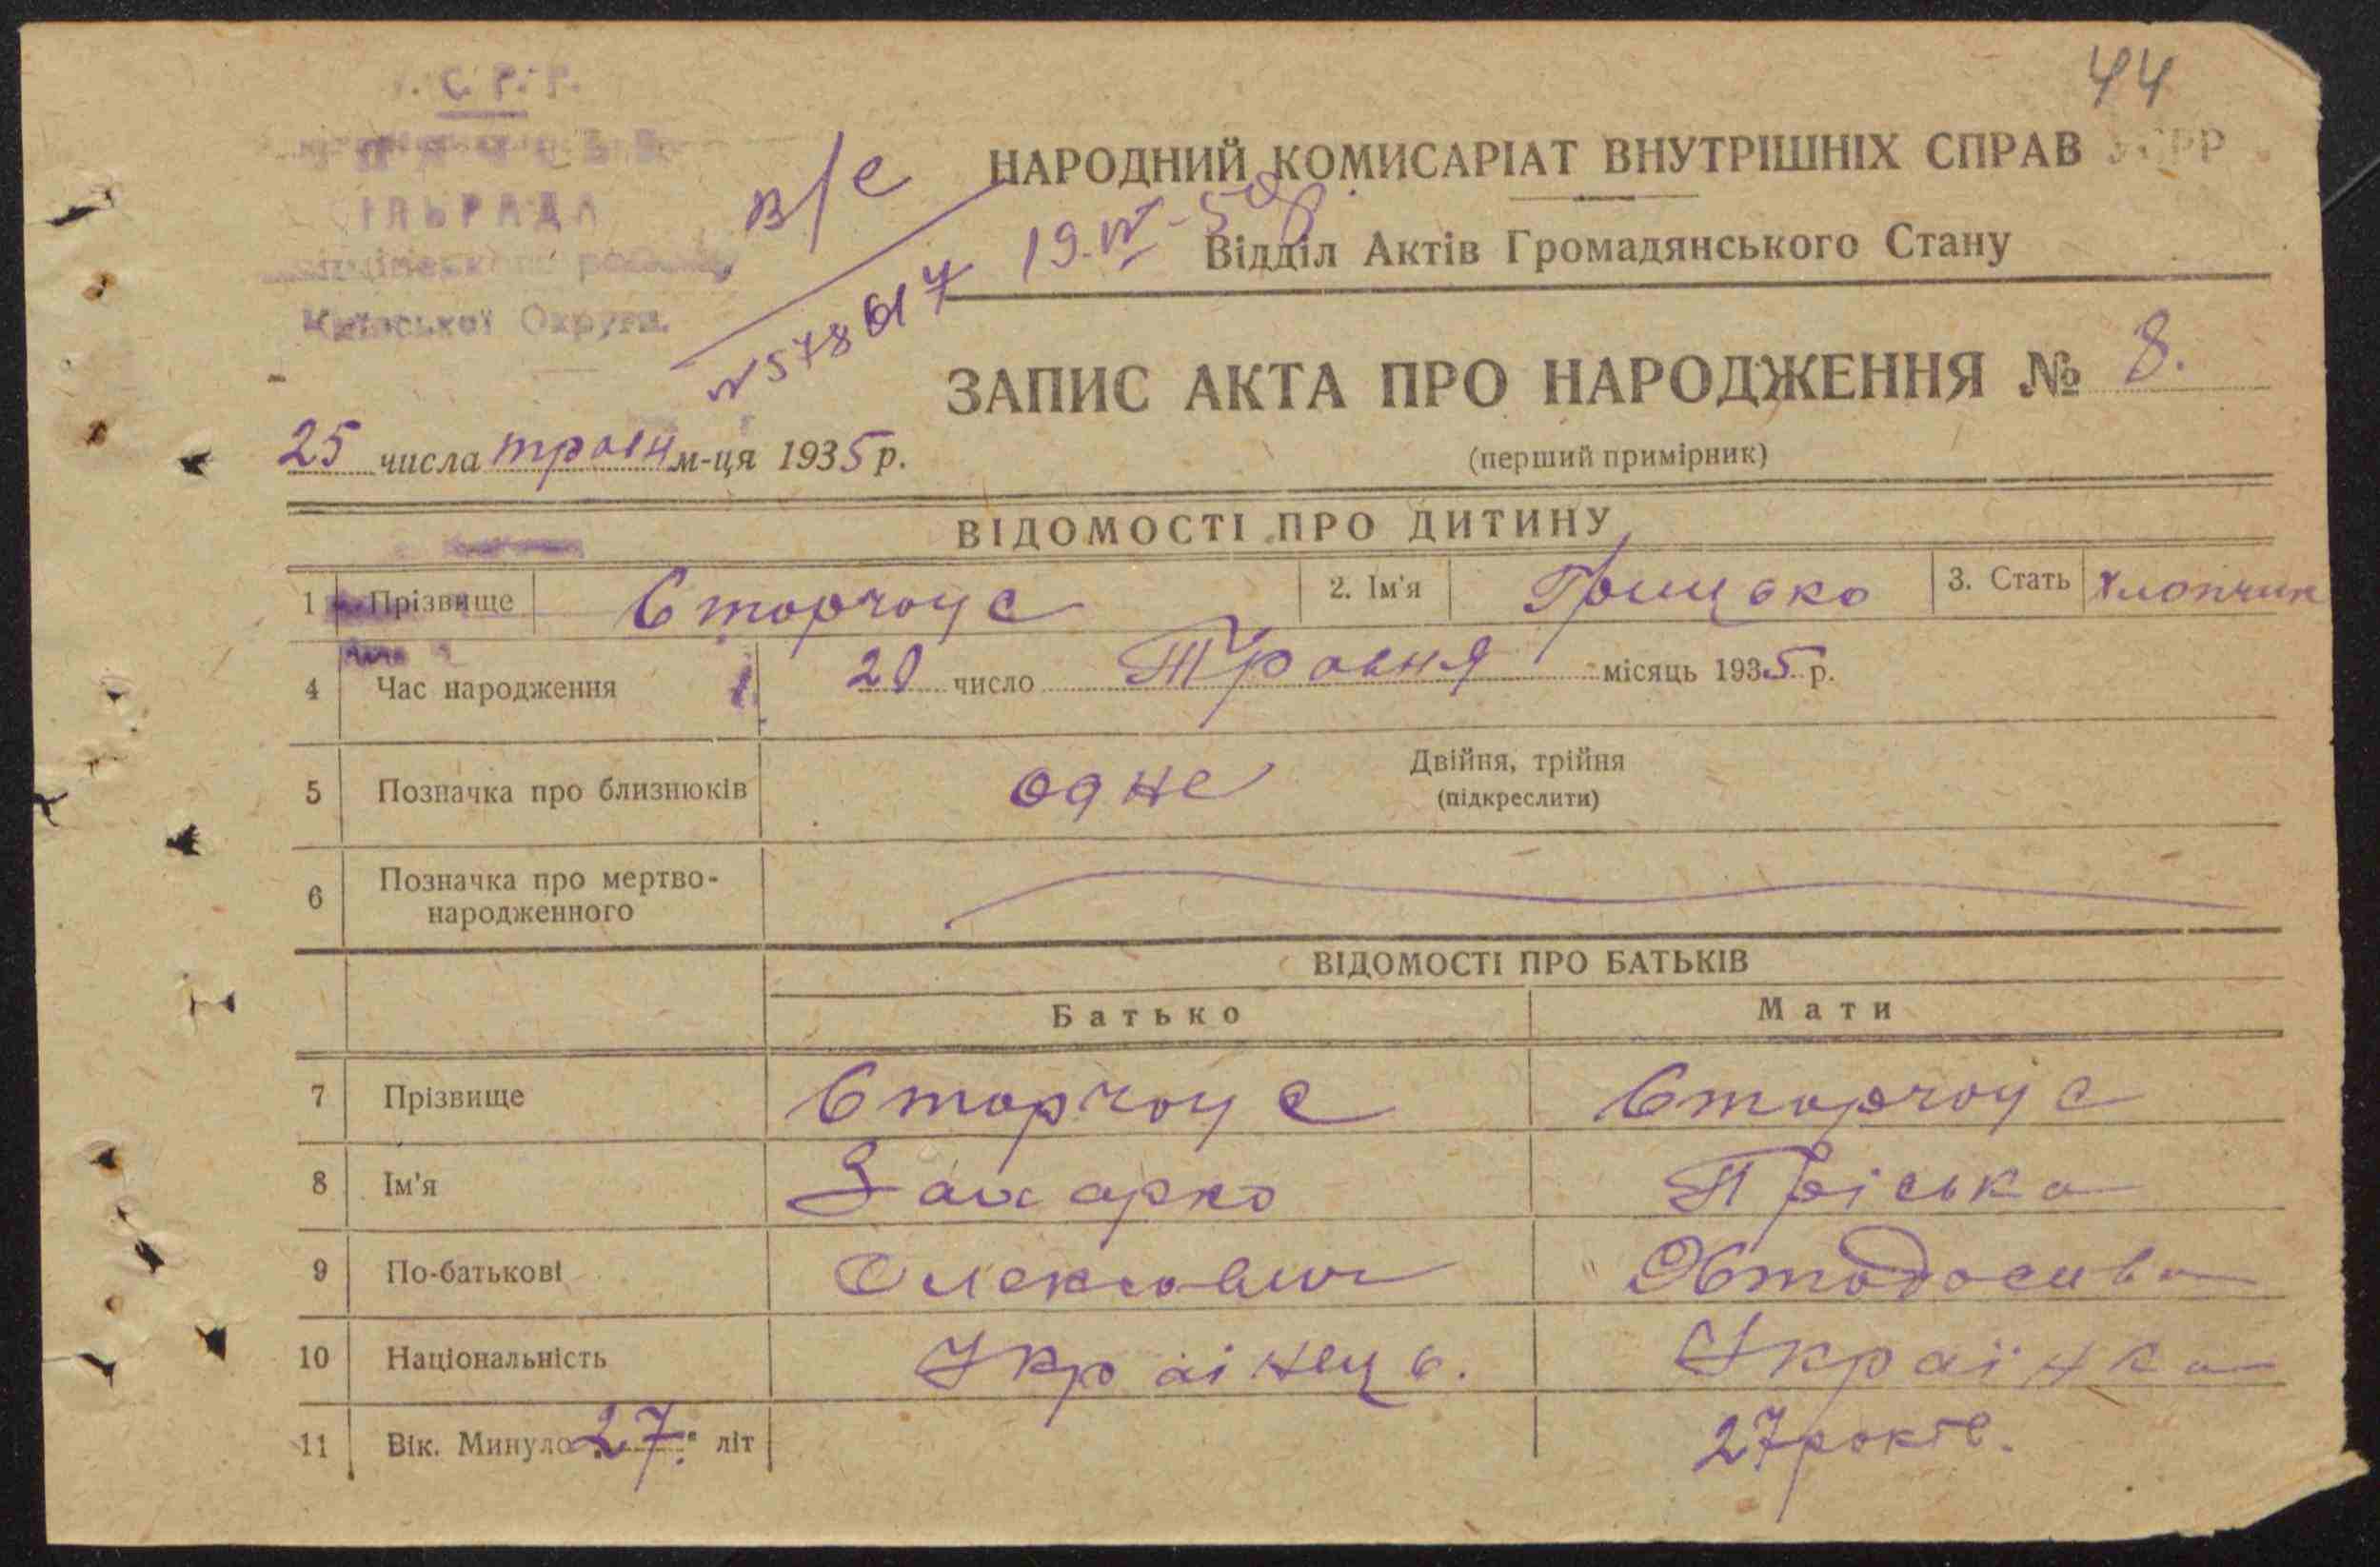 44
С. Р. Р.
СІЛЬРАДА
Київської Округи.
в/с
19.IV-50р.
№578017
НАРОДНИЙ КОМИСАРІАТ ВНУТРІШНІХ СПРАВ УСРР
Відділ Актів Громадянського Стану
ЗАПИС АКТА ПРО НАРОДЖЕННЯ № 8.
(перший примірник)
25 числа травн м-ця 1935 р.
ВІДОМОСТІ ПРО ДИТИНУ
1 Прізвище Сторчоус 2. Ім'я Грицько 3. Стать Хлопчик
4 Час народження 20 число Травня місяць 1935 р.
5 Позначка про близнюків одне Двійня, трійня
(підкреслити)
6 Позначка про мертво-
народженного
ВІДОМОСТІ ПРО БАТЬКІВ
Батько Мати
7 Прізвище Сторчоус Сторчоус
8 Ім'я Захарко Пріська
9 По-батькові Олексович
10 Національність Україінець. Україінка
11 Вік. Минуло 27. літ 27 років.